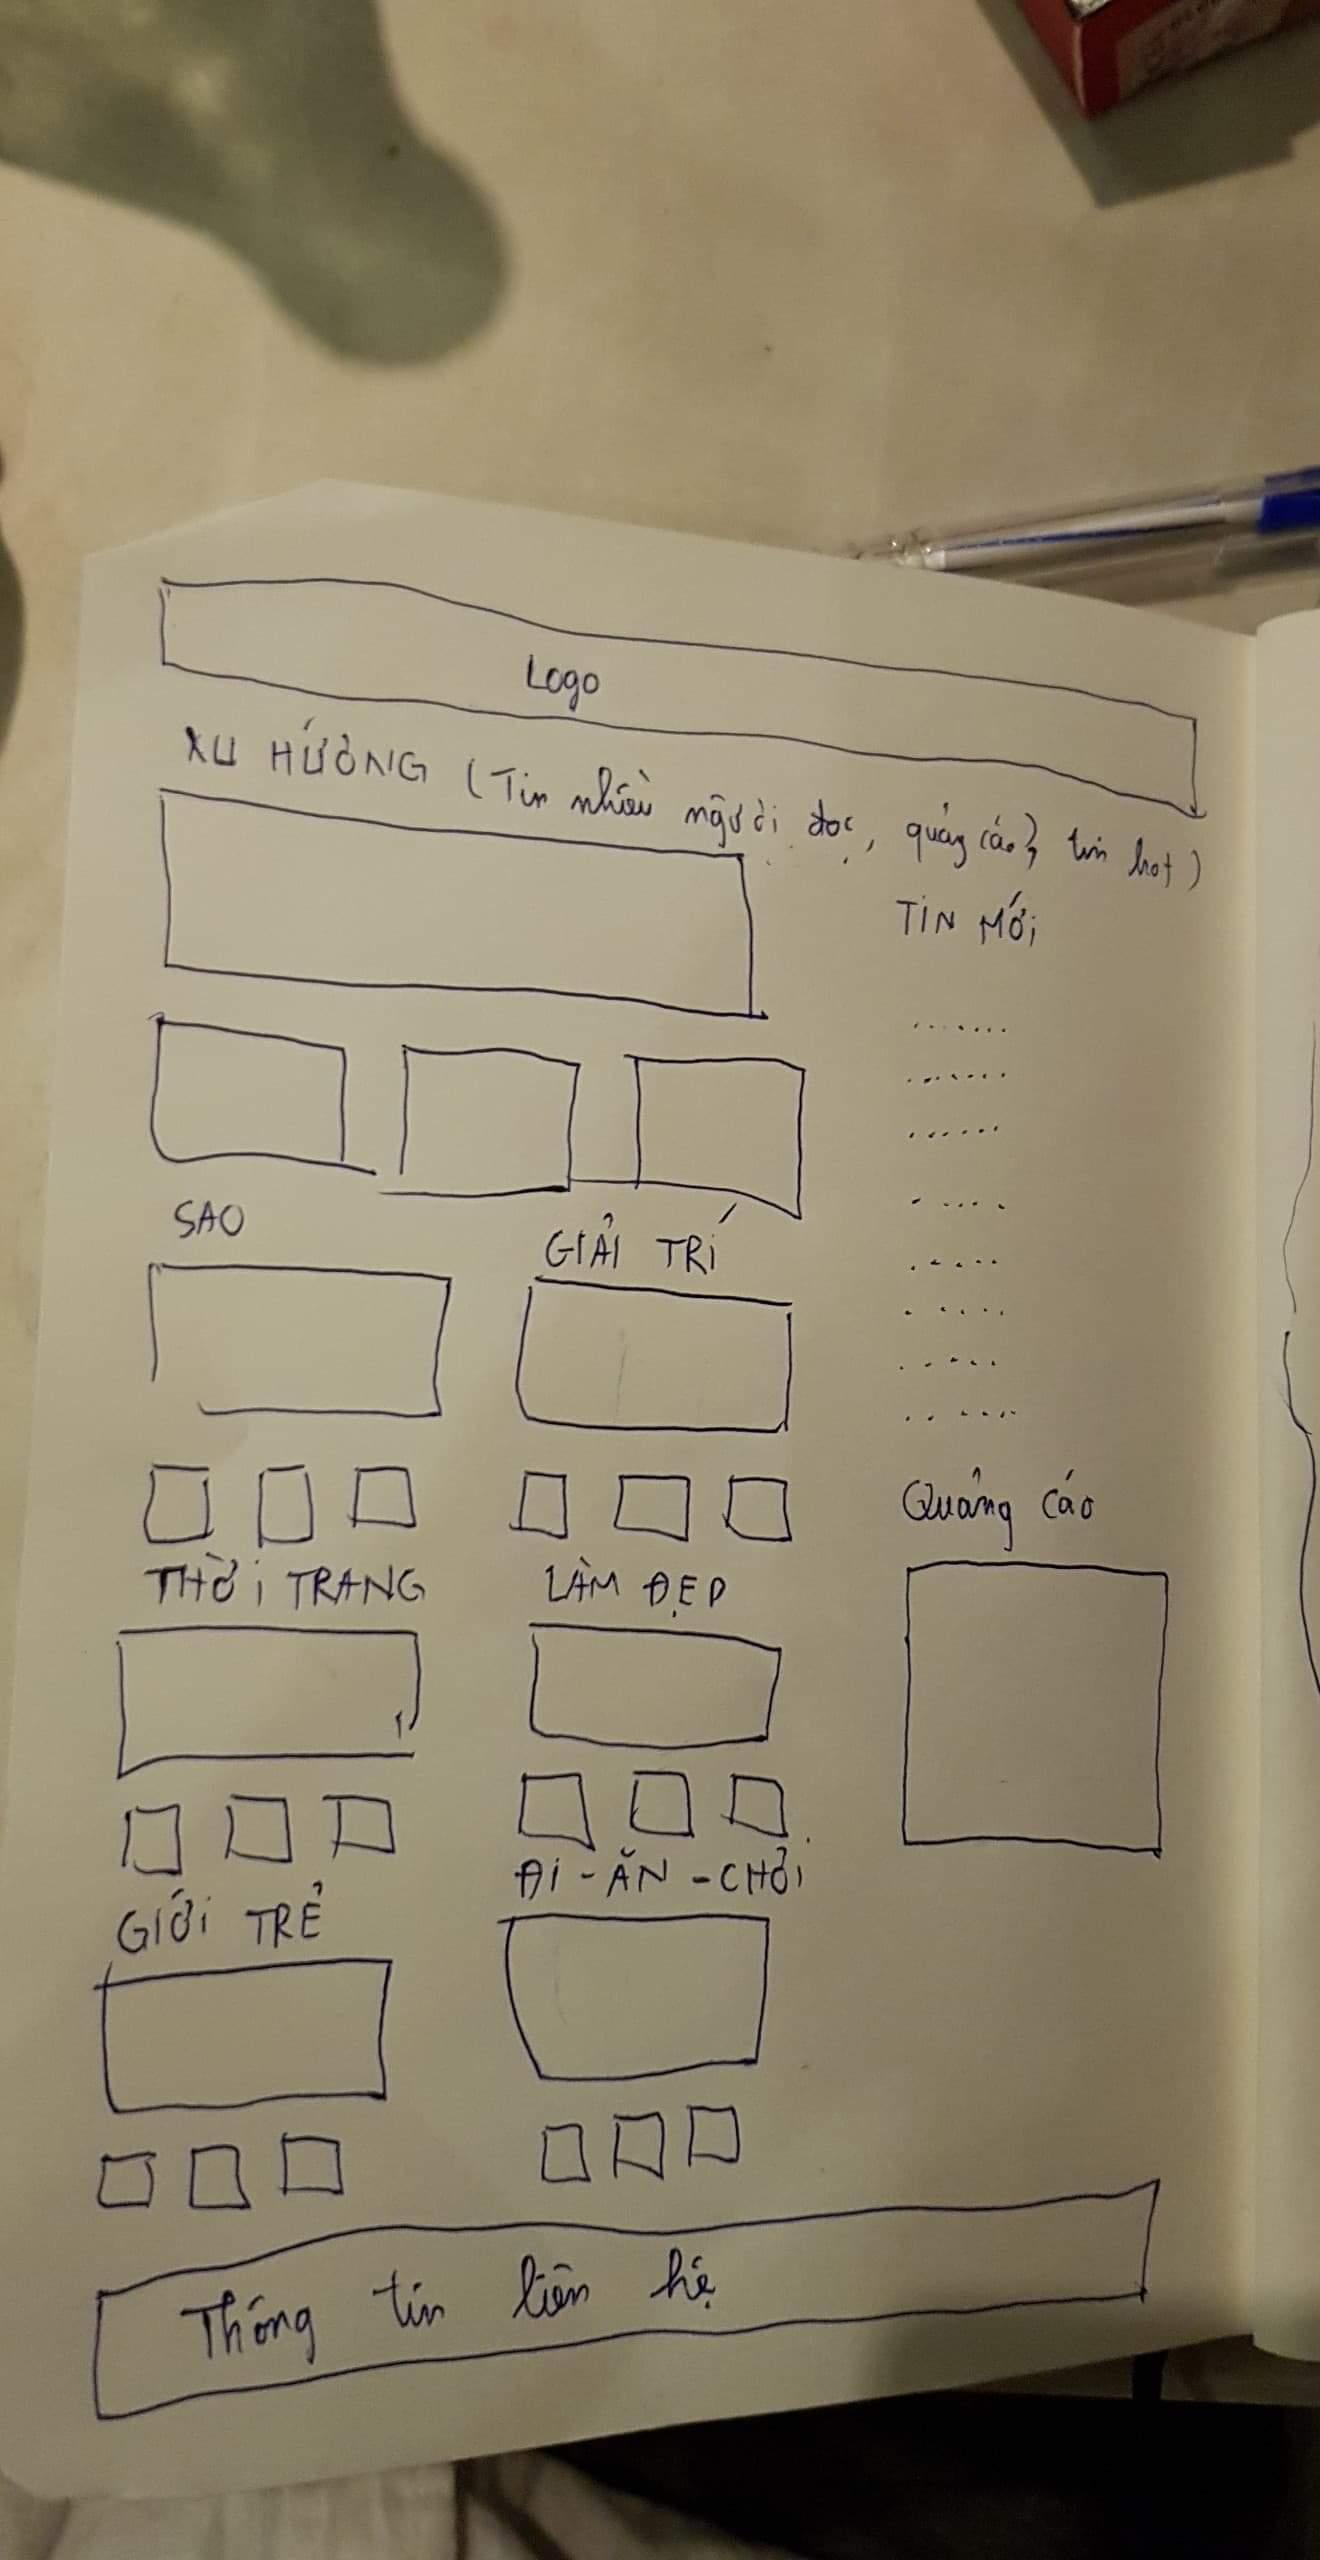 Logo
XU HƯỚNG (Tin nhiều người đọc, quảng cáo, tin hot)
TIN MỚI
SAO
GIẢI TRÍ
Quảng cáo
THỜI TRANG
LÀM ĐẸP
ĐI - ĂN - CHƠI
GIỚI TRẺ
Thông tin liên hệ